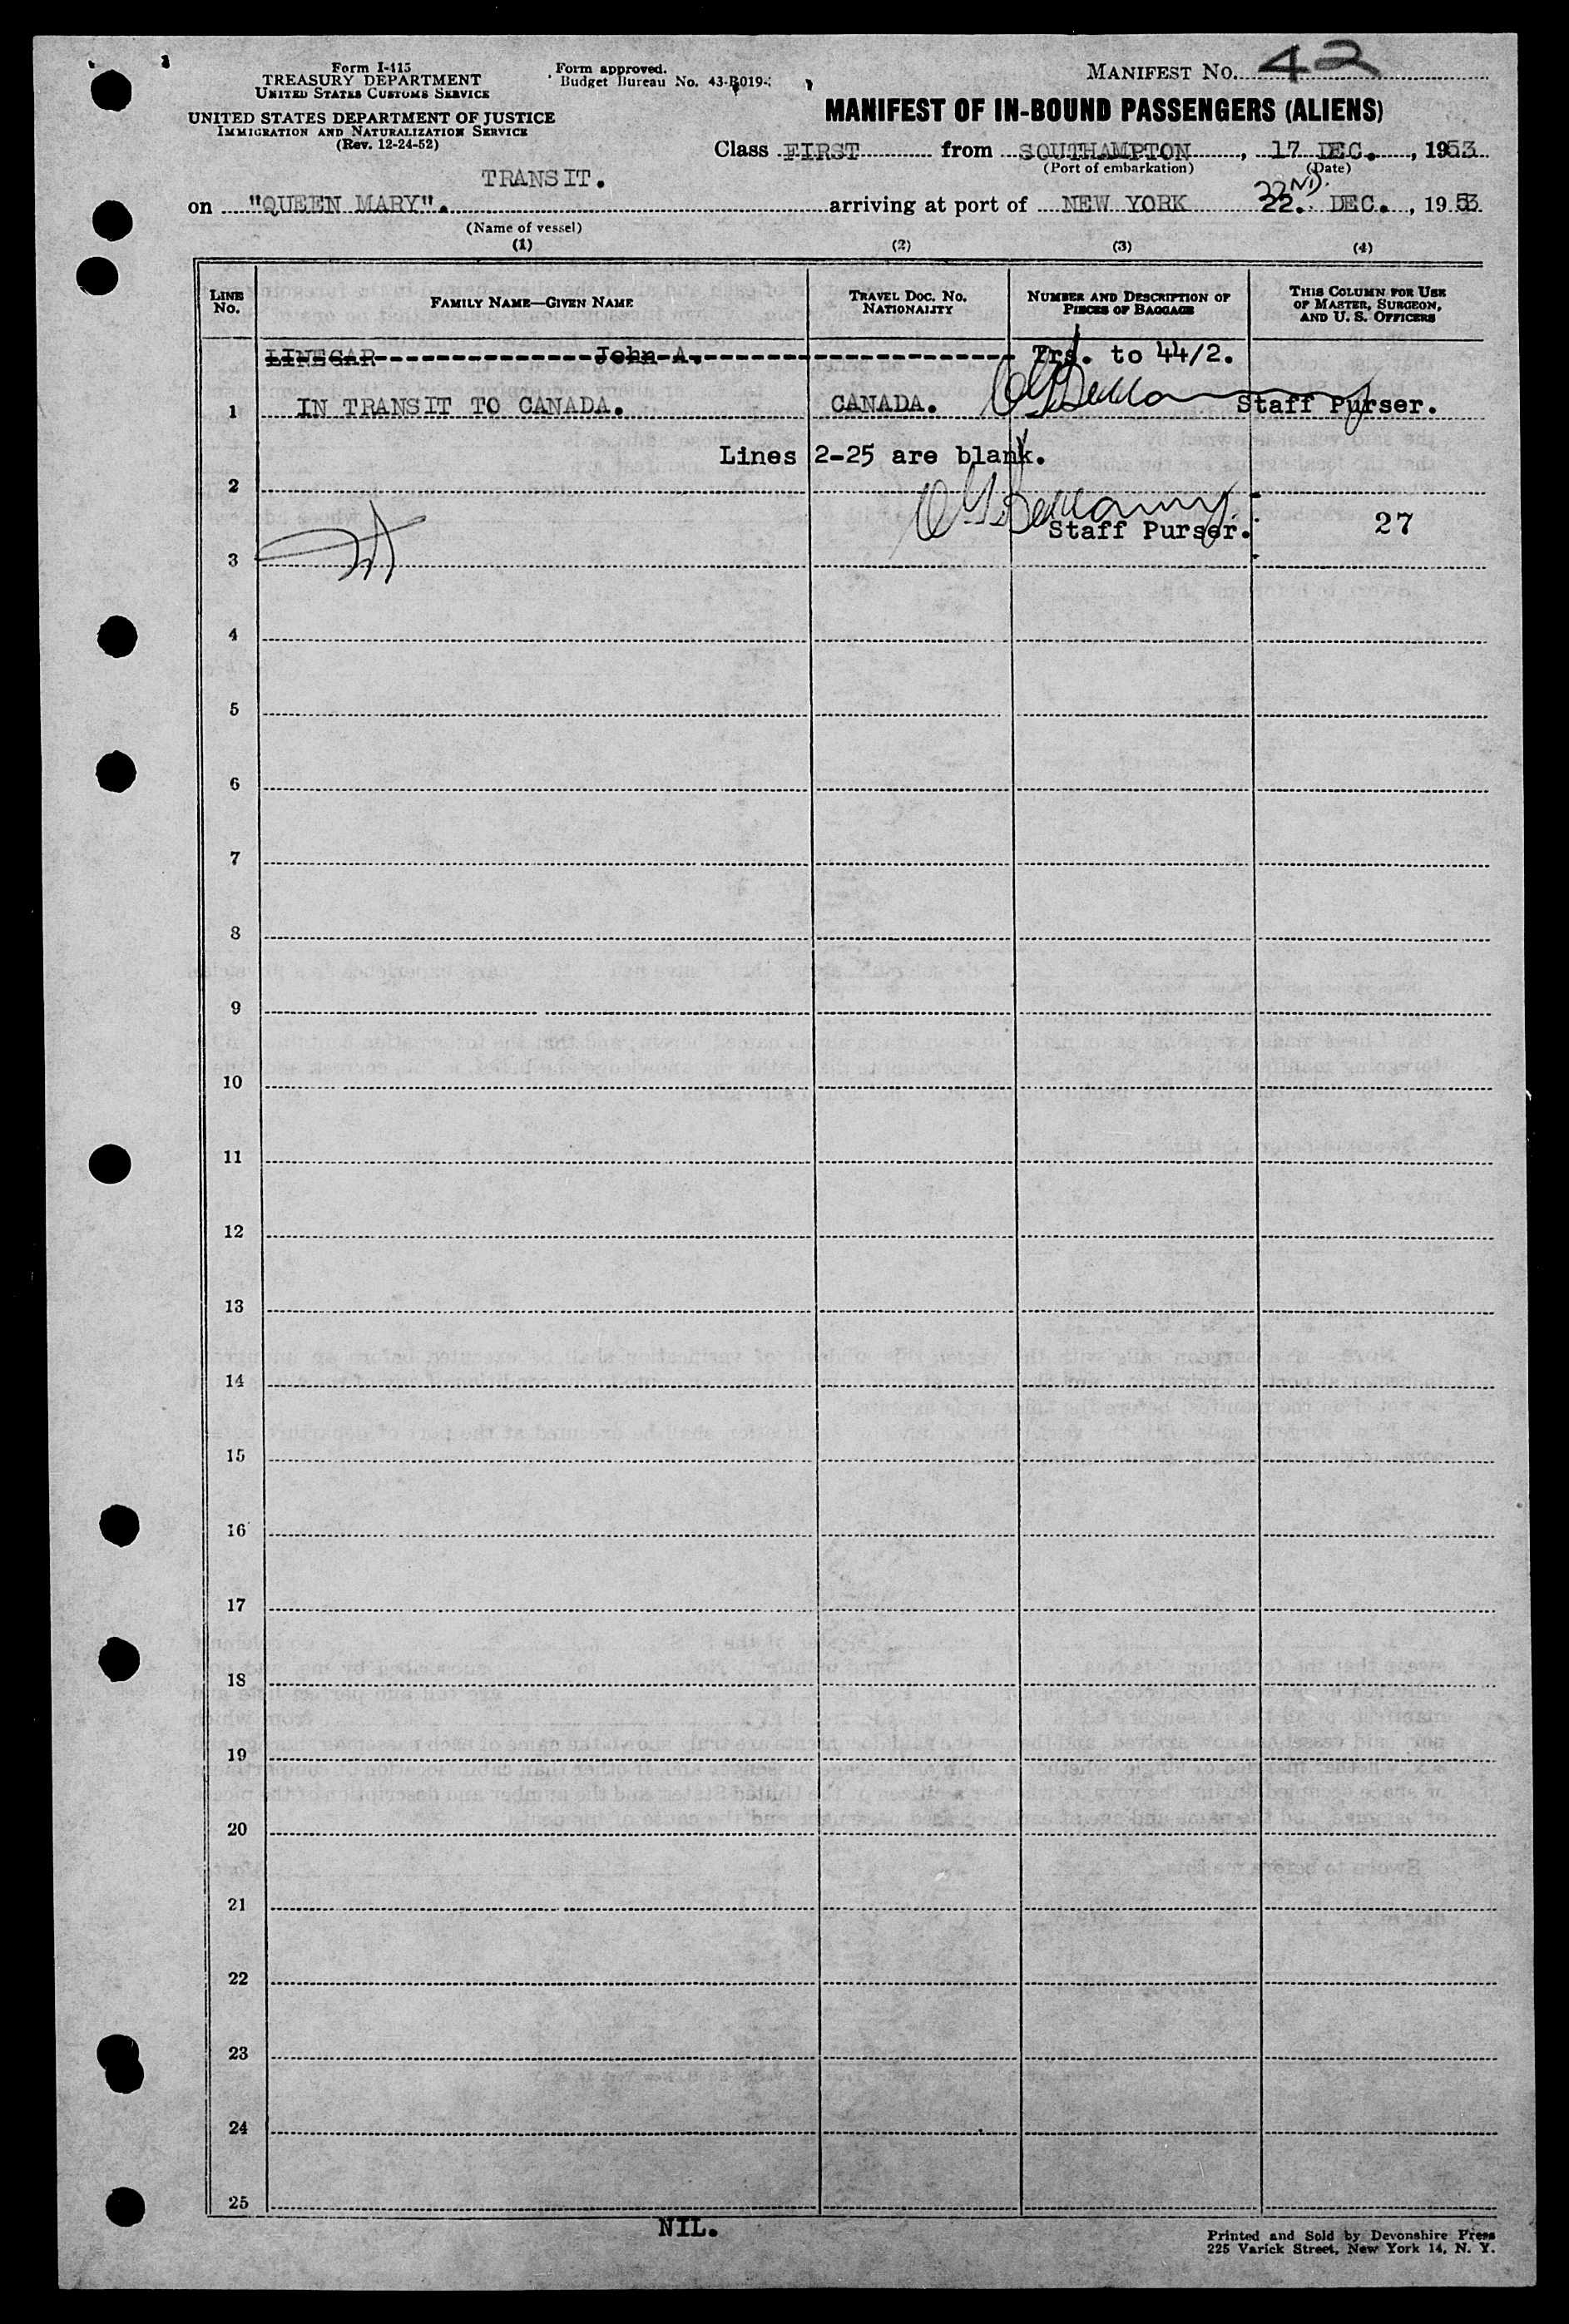 Form I-415
TREASURY DEPARTMENT
UNITED STATES CUSTOMS SERVICE
UNITED STATES DEPARTMENT OF JUSTICE
IMMIGRATION AND NATURALIZATION SERVICE
(Rev. 12-24-52)
Form approved.
Budget Bureau No. 43-R019-
MANIFEST NO. 42
MANIFEST OF IN-BOUND PASSENGERS (ALIENS)
Class FIRST from SOUTHAMPTON, 17 DEC., 1953
(Port of embarkation) (Date)
TRANSIT.
22ND.
on "QUEEN MARY". arriving at port of NEW YORK 22. DEC., 1953
(Name of vessel)
(1) (2) (3) (4)
LINE NO. FAMILY NAME—GIVEN NAME TRAVEL DOC. NO. NATIONALITY NUMBER AND DESCRIPTION OF PIECES OF BAGGAGE THIS COLUMN FOR USE OF MASTER, SURGEON, AND U. S. OFFICERS
LINEGAR John A. Trs. to 44/2.
1 IN TRANSIT TO CANADA. CANADA. Staff Purser.
Lines 2-25 are blank.
2
Staff Purser. 27
3
4
5
6
7
8
9
10
11
12
13
14
15
16
17
18
19
20
21
22
23
24
25
NIL.
Printed and Sold by Devonshire Press
225 Varick Street, New York 14, N. Y.